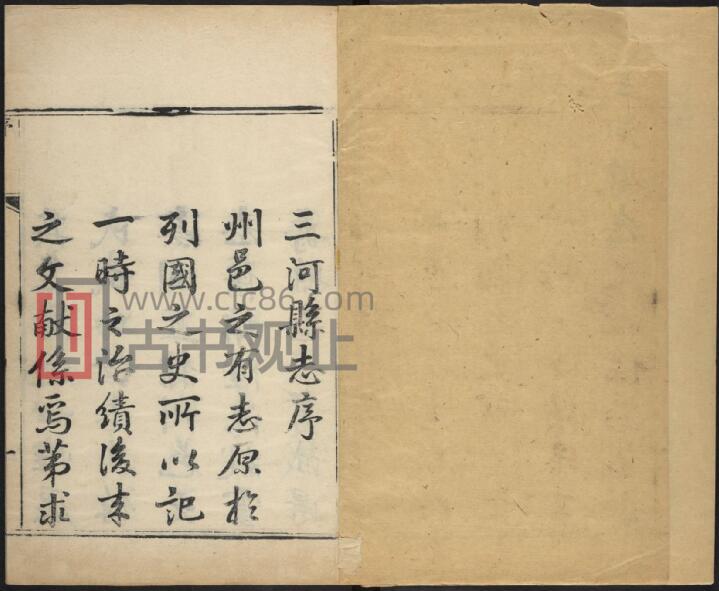 三河縣志序
州邑之有志原於
列國之史所以記
一時之治績後来
之文献係焉第求
www.cjc86.com
古书观止